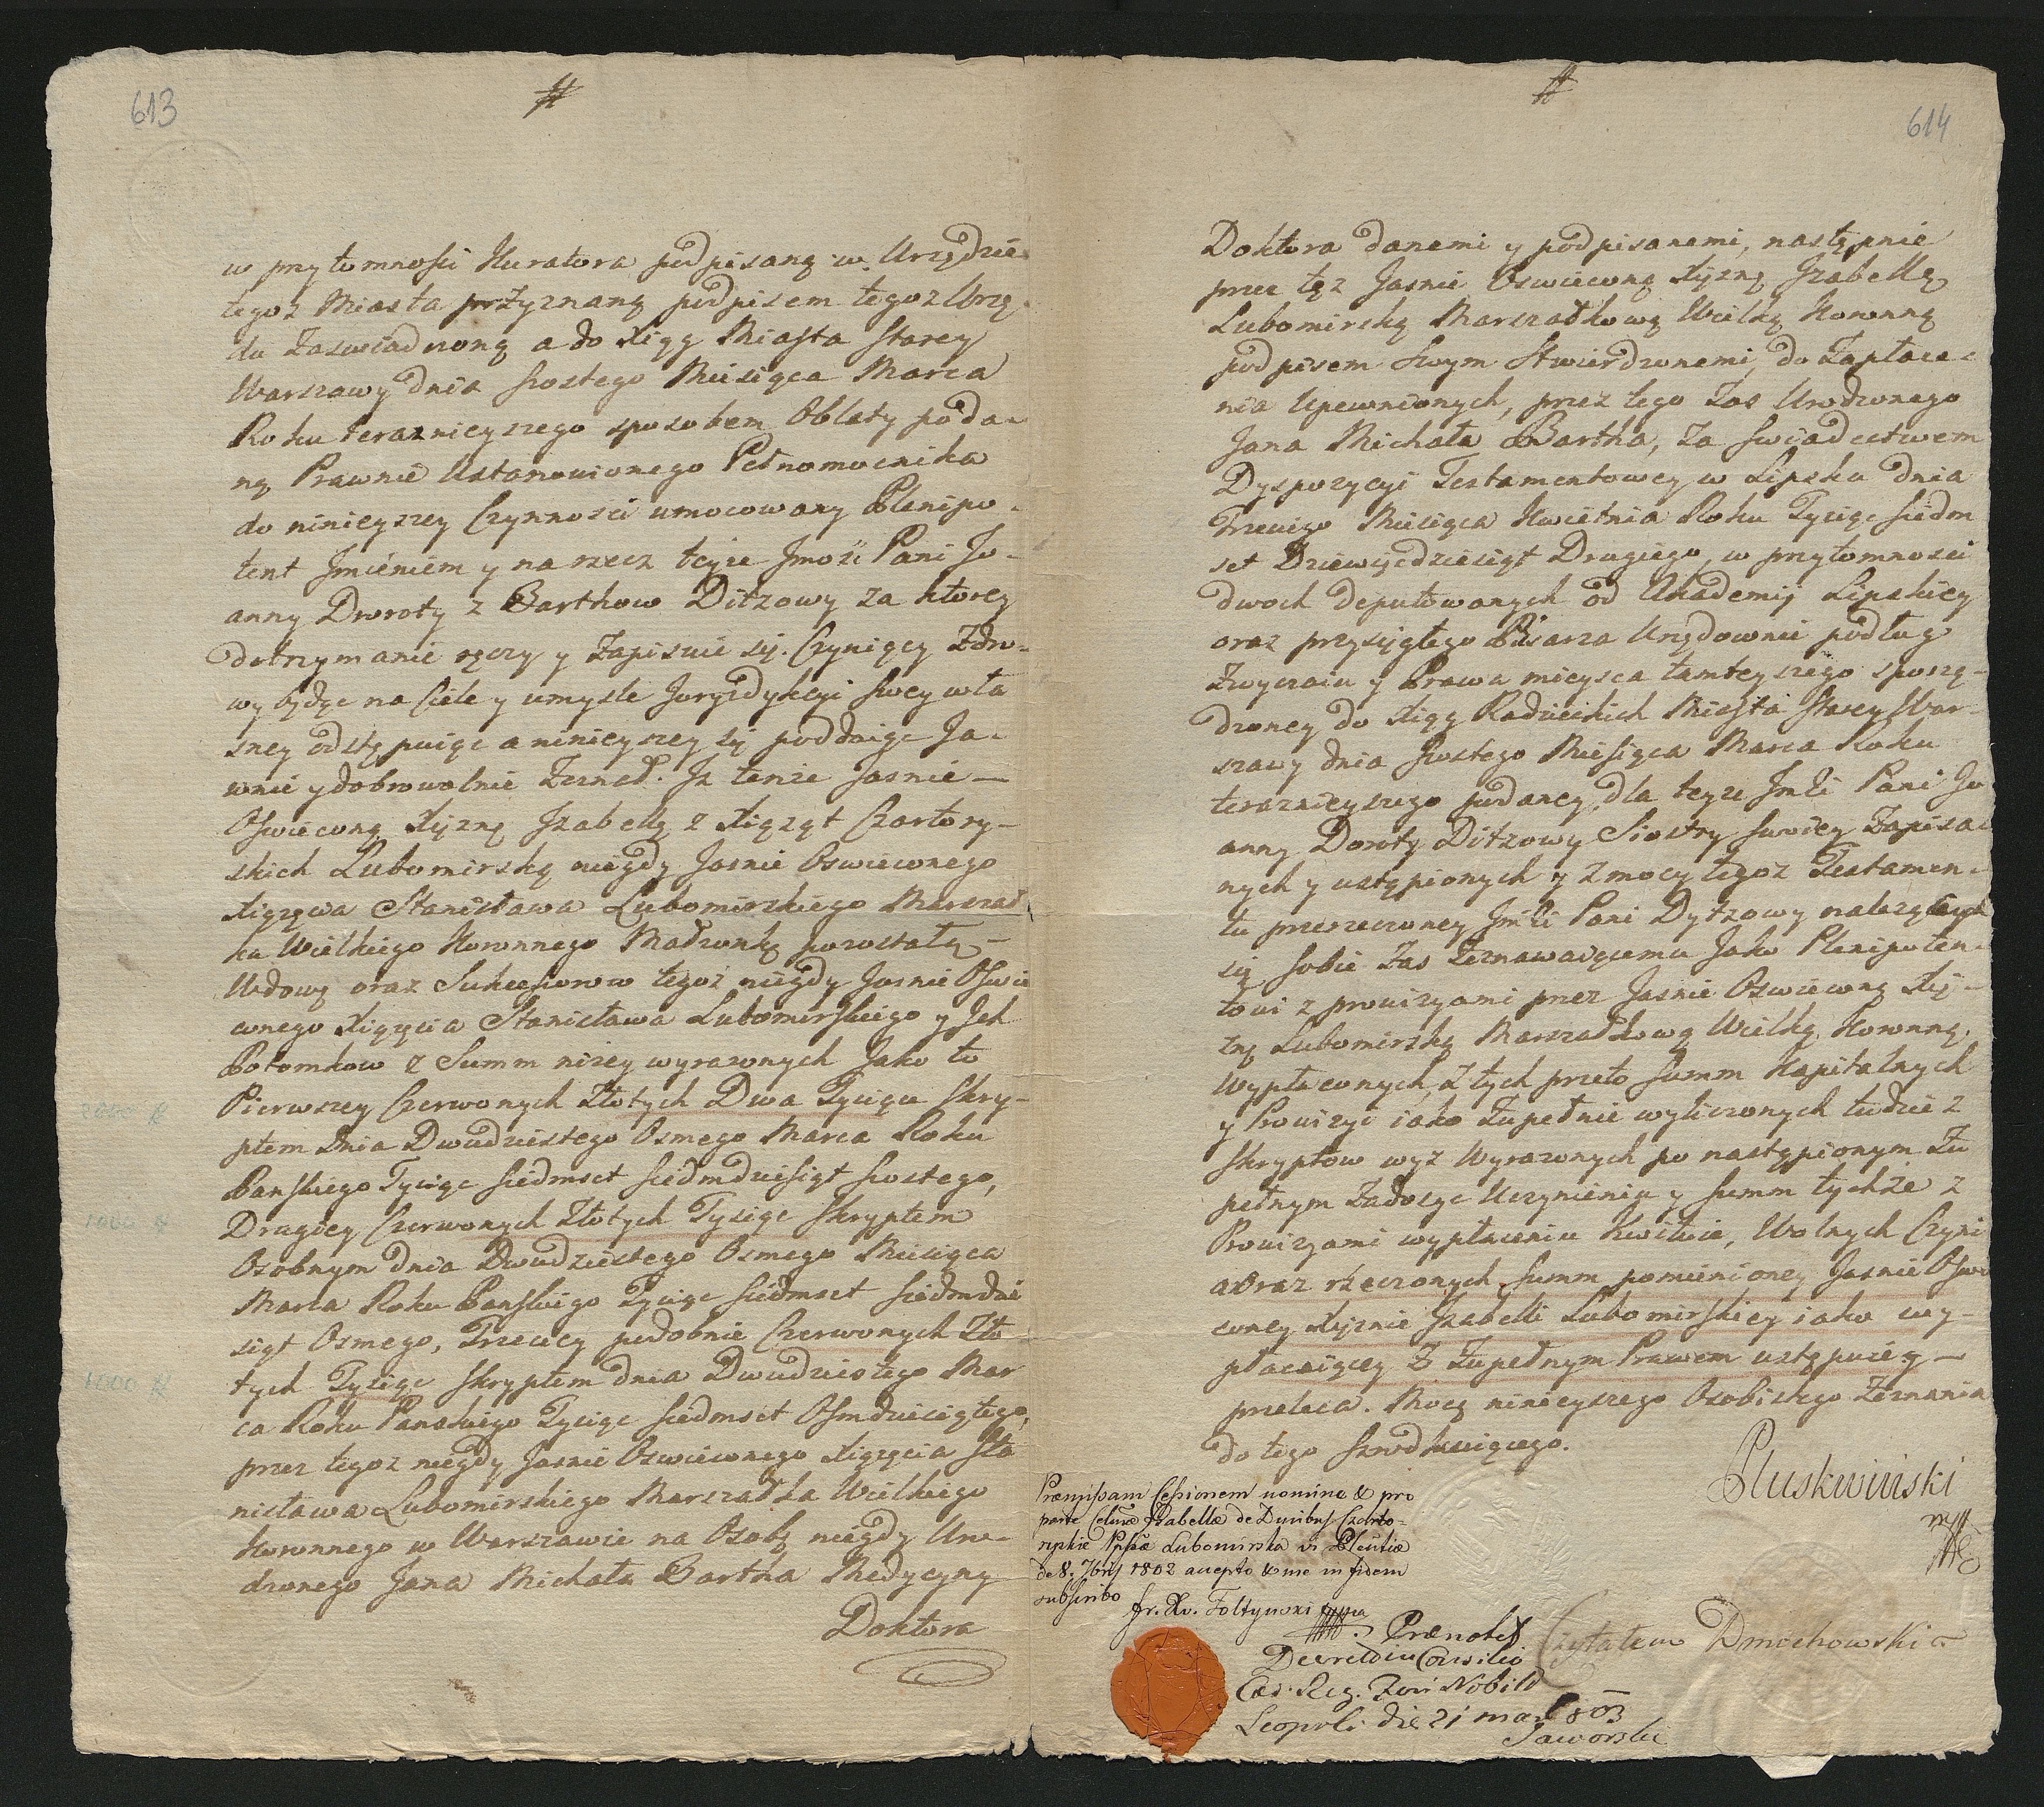 613
w przytomnosci Kuratora podpisaną w Urzędzie
tegoż Miasta przyznaną podpisem tegoż Urzę-
du Zaswiadczoną a do Xiąg Miasta Starey
Warszawy dnia szostego Miesiąca Marca
Roku teraznieyszego sposobem Oblaty poda-
ną Prawnie Ustanowionego Pełnomocnika
do ninieyszey Czynnosci umocowany Plenipo-
tent Jmieniem y na rzecz teyże Jmosci Pani Jo-
anny Doroty z Barthow Ditzowy za ktorey
dotrzymanie ręczy y Zapisuie się. Czyniący Zdro-
wy będąc na Ciele y umysle Juryzdykcyi swey wła
sney odstępuiąc a ninieyszey się poddaiąc Ja-
wnie y dobrowolnie Zeznał. Jż tenże Jasnie
Oswieconą Xiężnę Jzabellę z Xiążąt Czartory-
skich Lubomirską niegdy Jasnie Oswieconego
Xiążęcia Stanisława Lubomirskiego Marszał
ka Wielkiego Koronnego Małżonkę pozostałą
Wdowę oraz Sukcessorow tegoż niegdy Jasnie Oswie
conego Xiążęcia Stanisława Lubomirskiego y Jch
Potomkow z Summ niżey wyrazonych Jako to
Pierwszey Czerwonych Złotych Dwa Tysiące Skry-
ptem Dnia Dwudziestego Osmego Marca Roku
Panskiego Tysiąc siedmset siedmdziesiąt szostego,
Drugiey Czerwonych Złotych Tysiąc Skryptem
Osobnym dnia Dwudziestego Osmego Miesiąca
Marca Roku Panskiego Tysiąc siedmset siedmdzie
siąt Osmego, Trzeciey podobnie Czerwonych Zło
tych Tysiąc skryptem dnia Dwudziestego Mar
ca Roku Panskiego Tysiąc siedmset Osmdziesiątego,
przez tegoż niegdy Jasnie Oswieconego Xiążęcia Sta
nisława Lubomirskiego Marszałka Wielkiego
Koronnego w Warszawie na Osobę niegdy Uro-
dzonego Jana Michała Bartha Medycyny
Doktora
2000 #
1000 #
1000 #
614
Doktora danemi y podpisanemi, następnie
przez tęż Jasnie Oswieconą Xiężnę Jzabellę
Lubomirską Marszałkową Wielką Koronną
podpisem Swym Stwierdzonemi, do Zapłace-
nia Upewnionych, przez tego Zas Urodzonego
Jana Michała Bartha, Za swiadectwem
Dyspozycyi Testamentowey w Lipsku dnia
Trzeciego Miesiąca Kwietnia Roku Tysiąc siedm
set Dziewięćdziesiąt Drugiego, w przytomnosci
dwoch deputowanych od Akademij Lipskiey
oraz przysięgłego Pisarza Urzędownie podług
Zwyczaiu y Prawa mieysca tamteyszego sporzą-
dzoney do Xiąg Radzieckich Miasta Starey War-
szawy dnia szostego Miesiąca Marca Roku
teraznieyszego podaney, dla teyże Jmci Pani Jo
anny Doroty Ditzowy Siostry swoiey Zapisa-
nych y ustąpionych y z mocy tegoż Testamen-
tu przerzeczoney Jmci Pani Dytzowy należących
się sobie Zas Zeznawaiącemu Jako Plenipoten-
towi z prowizyami przez Jasnie Oswieconą Xię-
żnę Lubomirską Marszałkową Wielką Koronną,
Wypłaconych, Z tych przeto summ Kapitalnych
y Prowizyi iako Zupełnie wyliczonych tudzież
Skryptow wyż Wyrazonych po nastąpionym Zu
pełnym Zadosyc Uczynieniu y summ tychże z
Prowizyami wypłaceniu Kwituie, Wolnych Czyni
a oraz rzeczonych summ pomienioney Jasnie Oswie
coney Xiężnie Jzabelli Lubomirskiey iako wy-
płacaiącey Z Zupełnym Prawem ustępuie y
przelewa. Mocą ninieyszego Osobistego Zeznania
do tego szrodkuiącego.
Pluskwinski
mp
Præmissam Cessionem nomine & pro
parte Celsæ Isabellæ de Ducibus Czarto-
ryskie Ppssæ Lubomirska vi Plentiæ
de 8. 7bris 1802 accepto & me in fidem
subscribo
Fr. Xav. Foltynski mpp
Prænotet
Decretum in Consilio
Cæs. Reg. Fori Nobil
Leopoli die 21 mart 803
Jaworski
Czytałem Dmochowski